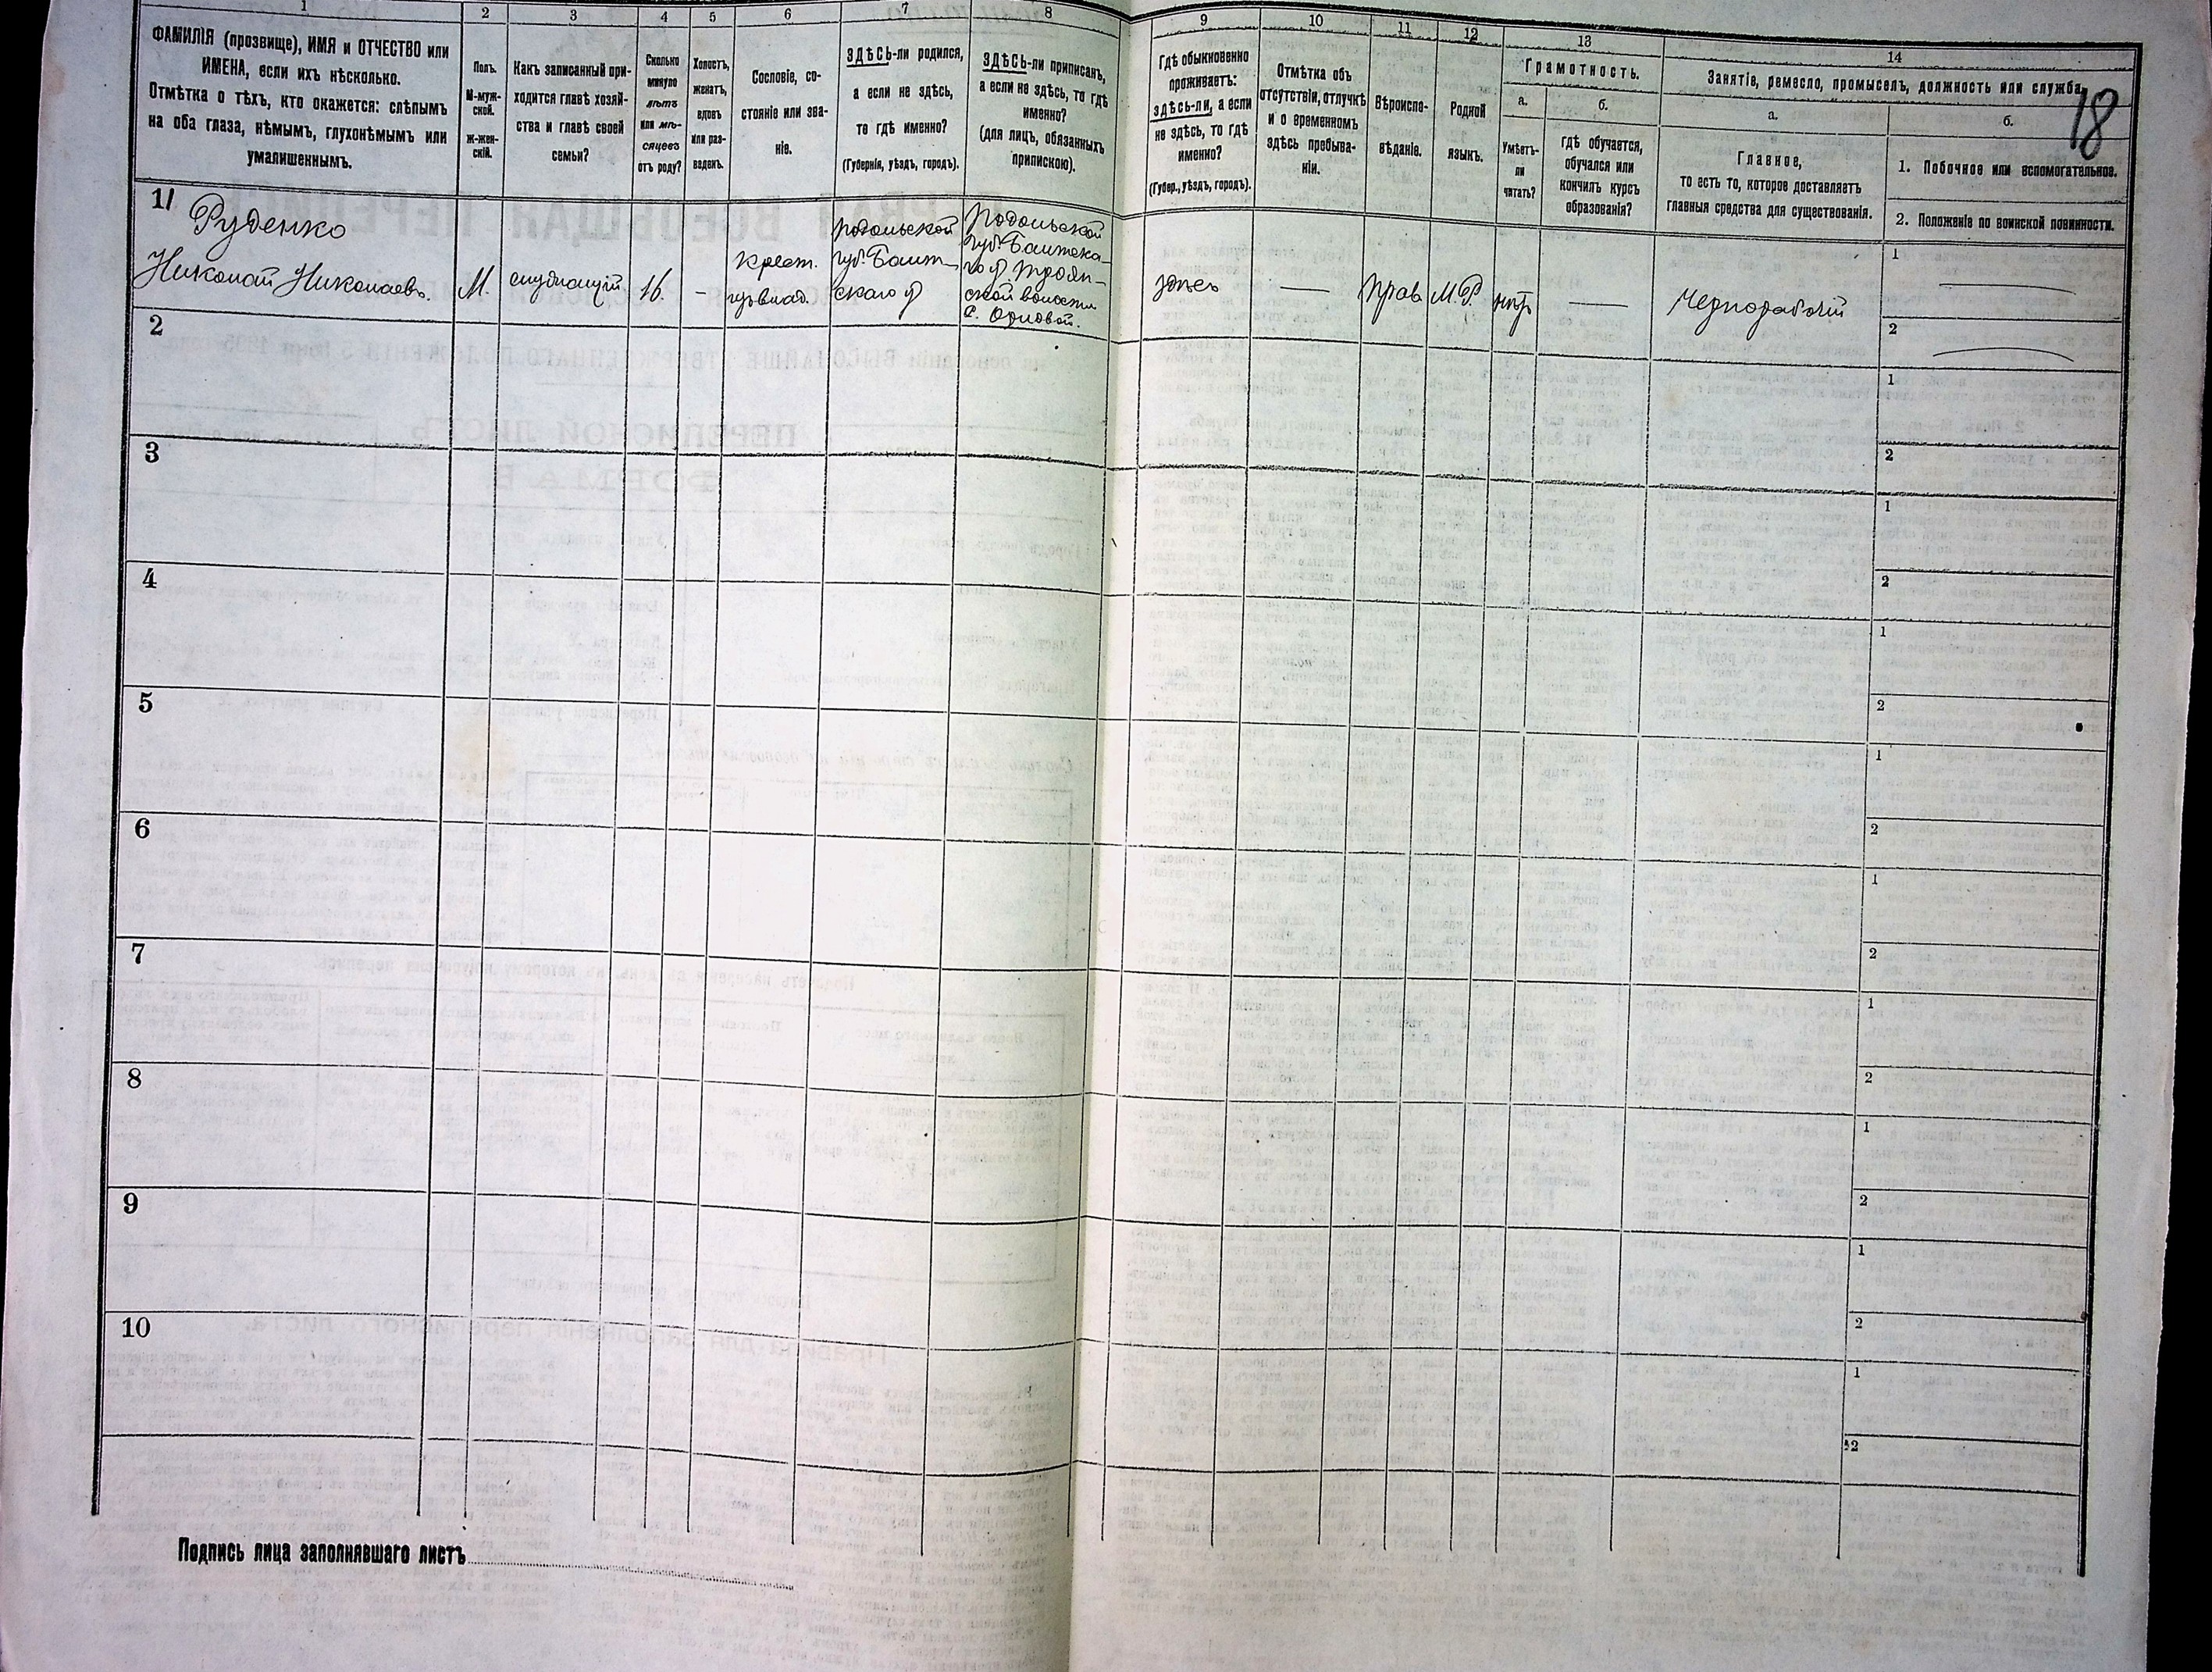 1
2
3
4
5
6
7
8
9
10
11
12
13
14
ФАМИЛІЯ (прозвище), ИМЯ и ОТЧЕСТВО или
ИМЕНА, если ихъ нѣсколько.
Отмѣтка о тѣхъ, кто окажется: слѣпымъ
на оба глаза, нѣмымъ, глухонѣмымъ или
умалишеннымъ.
Полъ.
М-муж-
ской.
ж-жен-
скій.
Какъ записанный при-
ходится главѣ хозяй-
ства и главѣ своей
семьи?
Сколько
минуло
лѣтъ
или мѣ-
сяцевъ
отъ роду?
Холостъ,
женатъ,
вдовъ
или раз-
веденъ.
Сословіе, со-
стояніе или зва-
ніе.
ЗДѢСЬ-ли родился,
а если не здѣсь,
то гдѣ именно?
(Губернія, уѣздъ, городъ).
ЗДѢСЬ-ли приписанъ,
а если не здѣсь, то гдѣ
именно?
(для лицъ, обязанныхъ
припискою).
Гдѣ обыкновенно
проживаетъ:
здѣсь-ли, а если
не здѣсь, то гдѣ
именно?
(Губер., уѣздъ, городъ).
Отмѣтка объ
отсутствіи, отлучкѣ
и о временномъ
здѣсь пребыва-
ніи.
Вѣроиспо-
вѣданіе.
Родной
языкъ.
Грамотность.
а.
б.
Умѣетъ-
ли
читать?
гдѣ обучается,
обучался или
кончилъ курсъ
образованія?
Занятіе, ремесло, промыселъ, должность или служба.
18
а.
б.
Главное,
то есть то, которое доставляетъ
главныя средства для существованія.
1. Побочное или вспомогательное.
2. Положеніе по воинской повинности.
1/
Руденко
Николай Николаевъ.
М.
служащій
16.
-
Крест.
Подольской
губ. Балт-
скаго у
Подольской
губ. Балтска-
го у. Троян-
ской волости
с. Орловой.
здѣсь
—
Прав
М.Р.
нѣтъ
—
Чернорабочій
1
2
2
1
2
3
1
2
4
1
2
5
1
2
6
1
2
7
1
2
8
1
2
9
1
2
10
1
2
Подпись лица заполнявшаго листъ